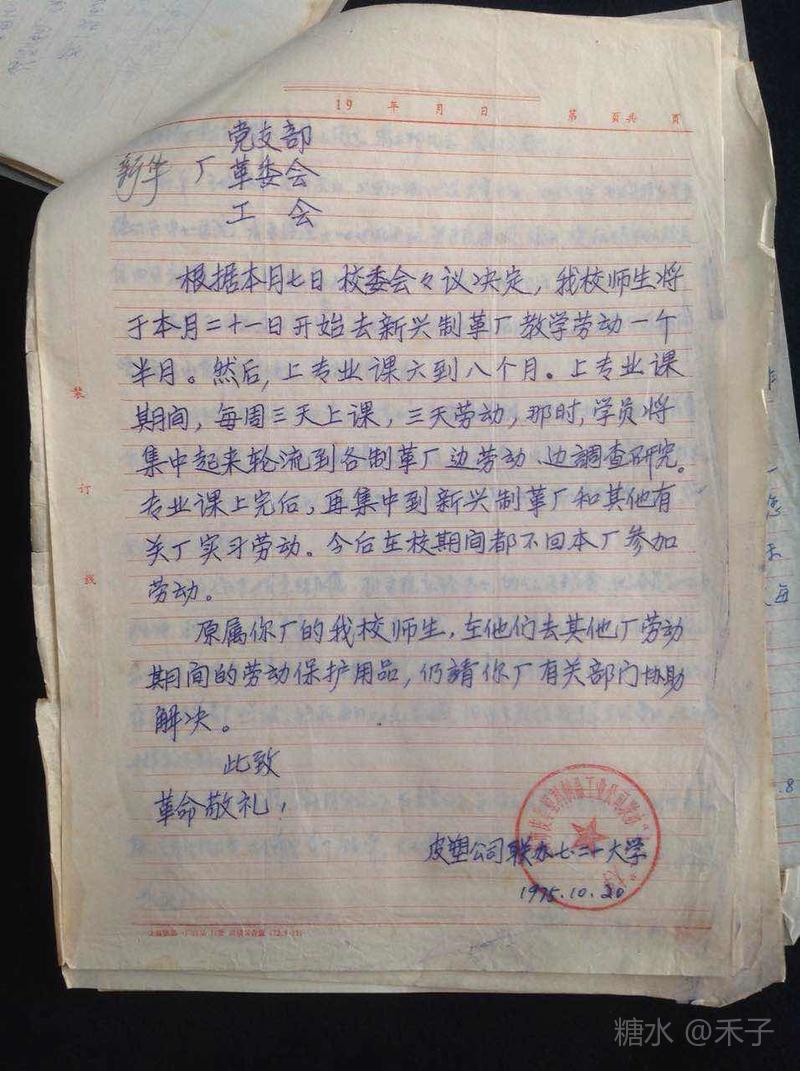 19 年 月 日 第 页共 页
党支部
新华 厂 革委会
工 会
根据本月七日校委会々议决定，我校师生将
于本月二十一日开始去新兴制革厂教学劳动一个
半月。然后，上专业课六到八个月。上专业课
期间，每周三天上课，三天劳动，那时，学员将
集中起来轮流到各制革厂边劳动、边調查研究。
专业课上完后，再集中到新兴制革厂和其他有
关厂实习劳动。今后在校期间都不回本厂参加
劳动。
原属你厂的我校师生，在他们去其他厂劳动
期间的劳动保护用品，仍請你厂有关部门协助
解决。
此致
革命敬礼！
皮塑公司联办七·二一大学
1975.10.20
装
订
线
糖水 @禾子